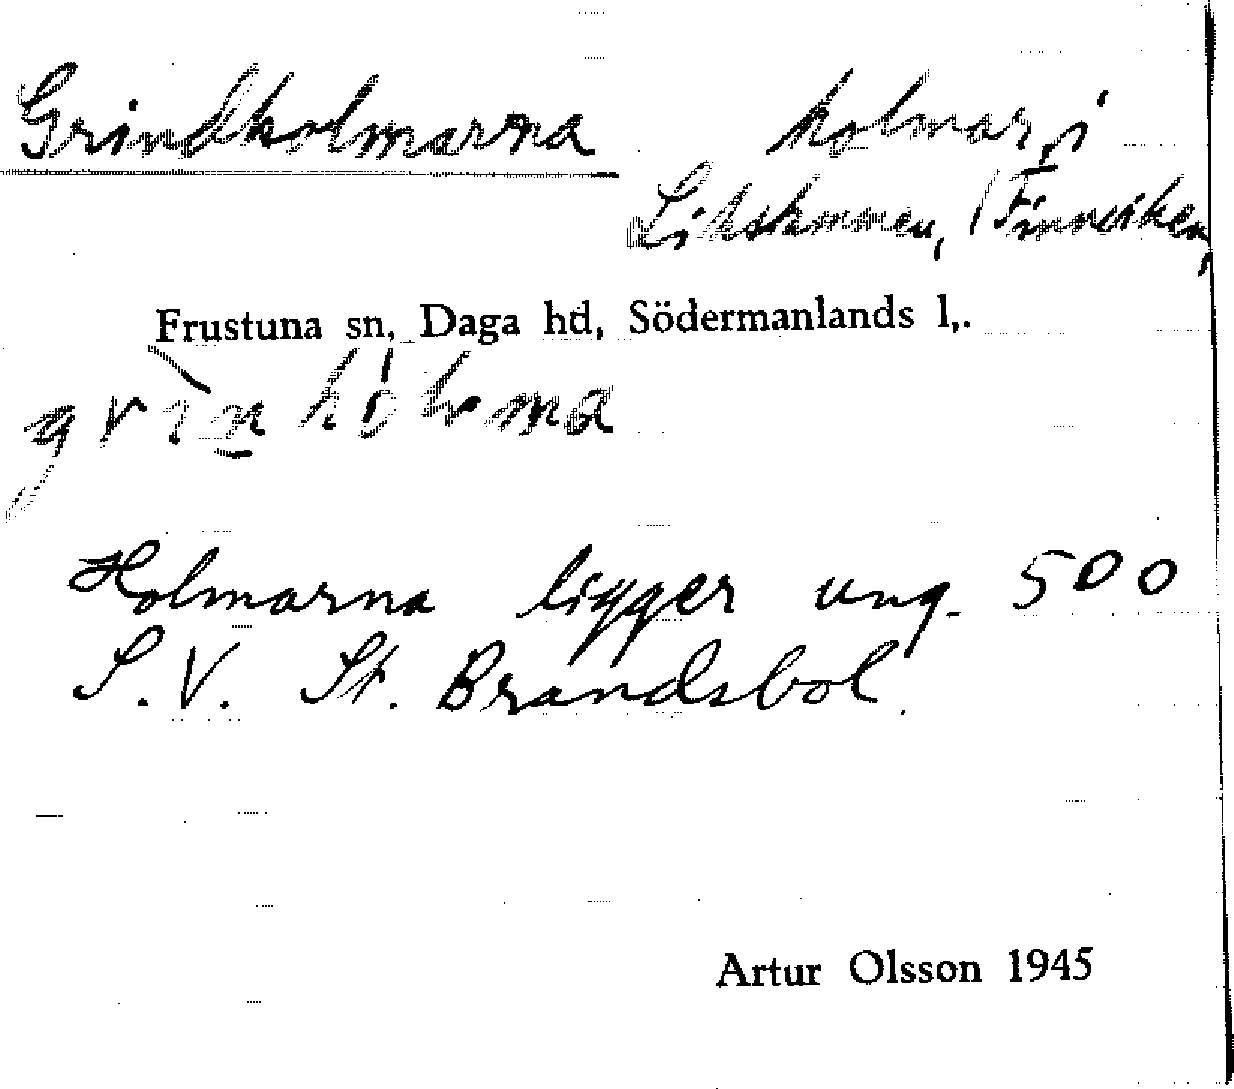 Grindholmarna holmar, i
Likstammen, (Finnviken,
Frustuna sn, Daga hd, Södermanlands l,.
Holmarna ligger ung. 500
S.V. St. Brandsbol.
Artur Olsson 1945